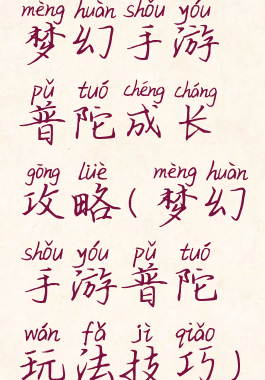 mèng huàn shǒu yóu
梦幻手游
pǔ tuó chéng cháng
普陀成长
gōng lüè mèng huàn
攻略(梦幻
shǒu yóu pǔ tuó
手游普陀
wán fǎ jì qiǎo
玩法技巧)